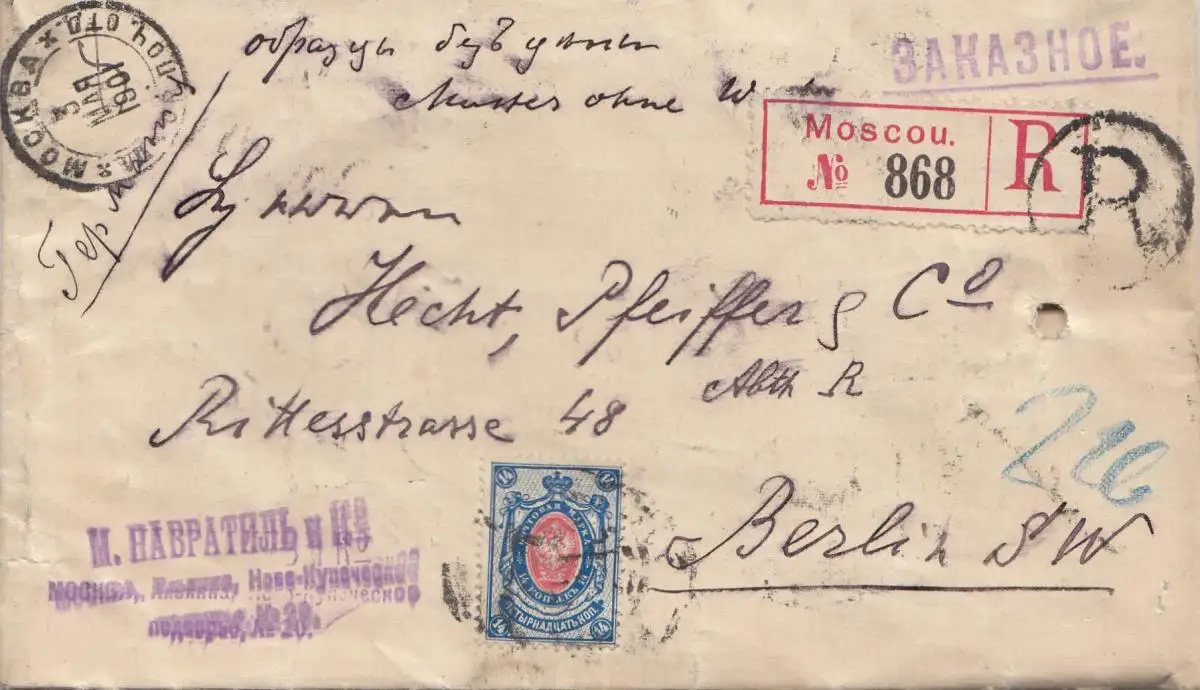 МОСКВА X. ПОЧ. ОТД.
3
МАР
1901
образцы безъ цѣны
Muster ohne
ЗАКАЗНОЕ.
Moscou.
№ 868
R
R
Hecht, Pfeiffer & Cº
Abth R
Ritterstrasse 48
Berlin SW
НАВРАТИЛЬ и Кº
МОСКВА, Ильинка, Ново-Купеческое
подворье, № 20.
14 14
ПОЧТОВАЯ МАРКА
14 КОП. 14
ЧЕТЫРНАДЦАТЬ КОП.
14 14